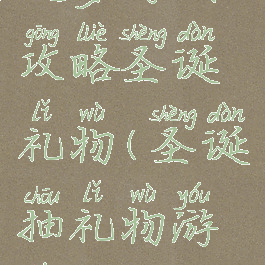 gōng lüè shèng dàn
攻略圣诞
lǐ wù shèng dàn
礼物(圣诞
chōu lǐ wù yóu
抽礼物游